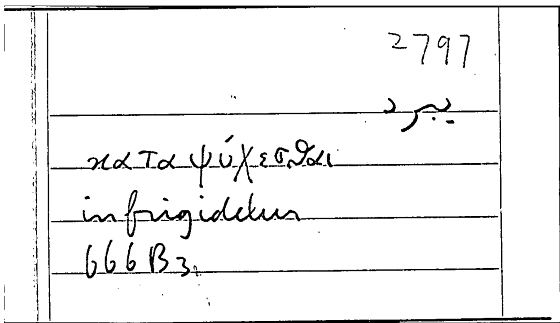 2797
يبرد
καταψύχεσθαι
infrigidetur
666B3.